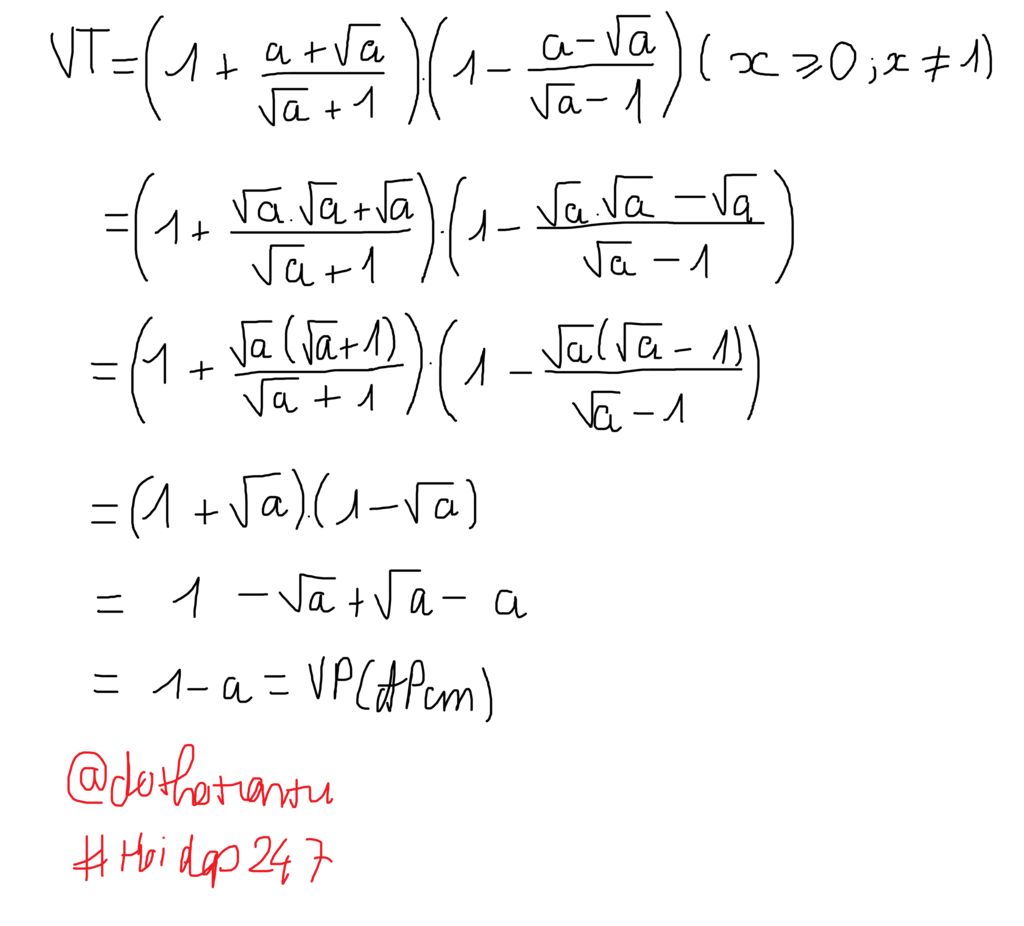 VT = (1 + (a + √a)/(√a + 1)).(1 − (a − √a)/(√a − 1)) (x ≥ 0; x ≠ 1)
= (1 + (√a.√a + √a)/(√a + 1)).(1 − (√a.√a − √a)/(√a − 1))
= (1 + √a(√a + 1)/(√a + 1)).(1 − √a(√a − 1)/(√a − 1))
= (1 + √a).(1 − √a)
= 1 − √a + √a − a
= 1 − a = VP (đPcm)
#Hoidap247